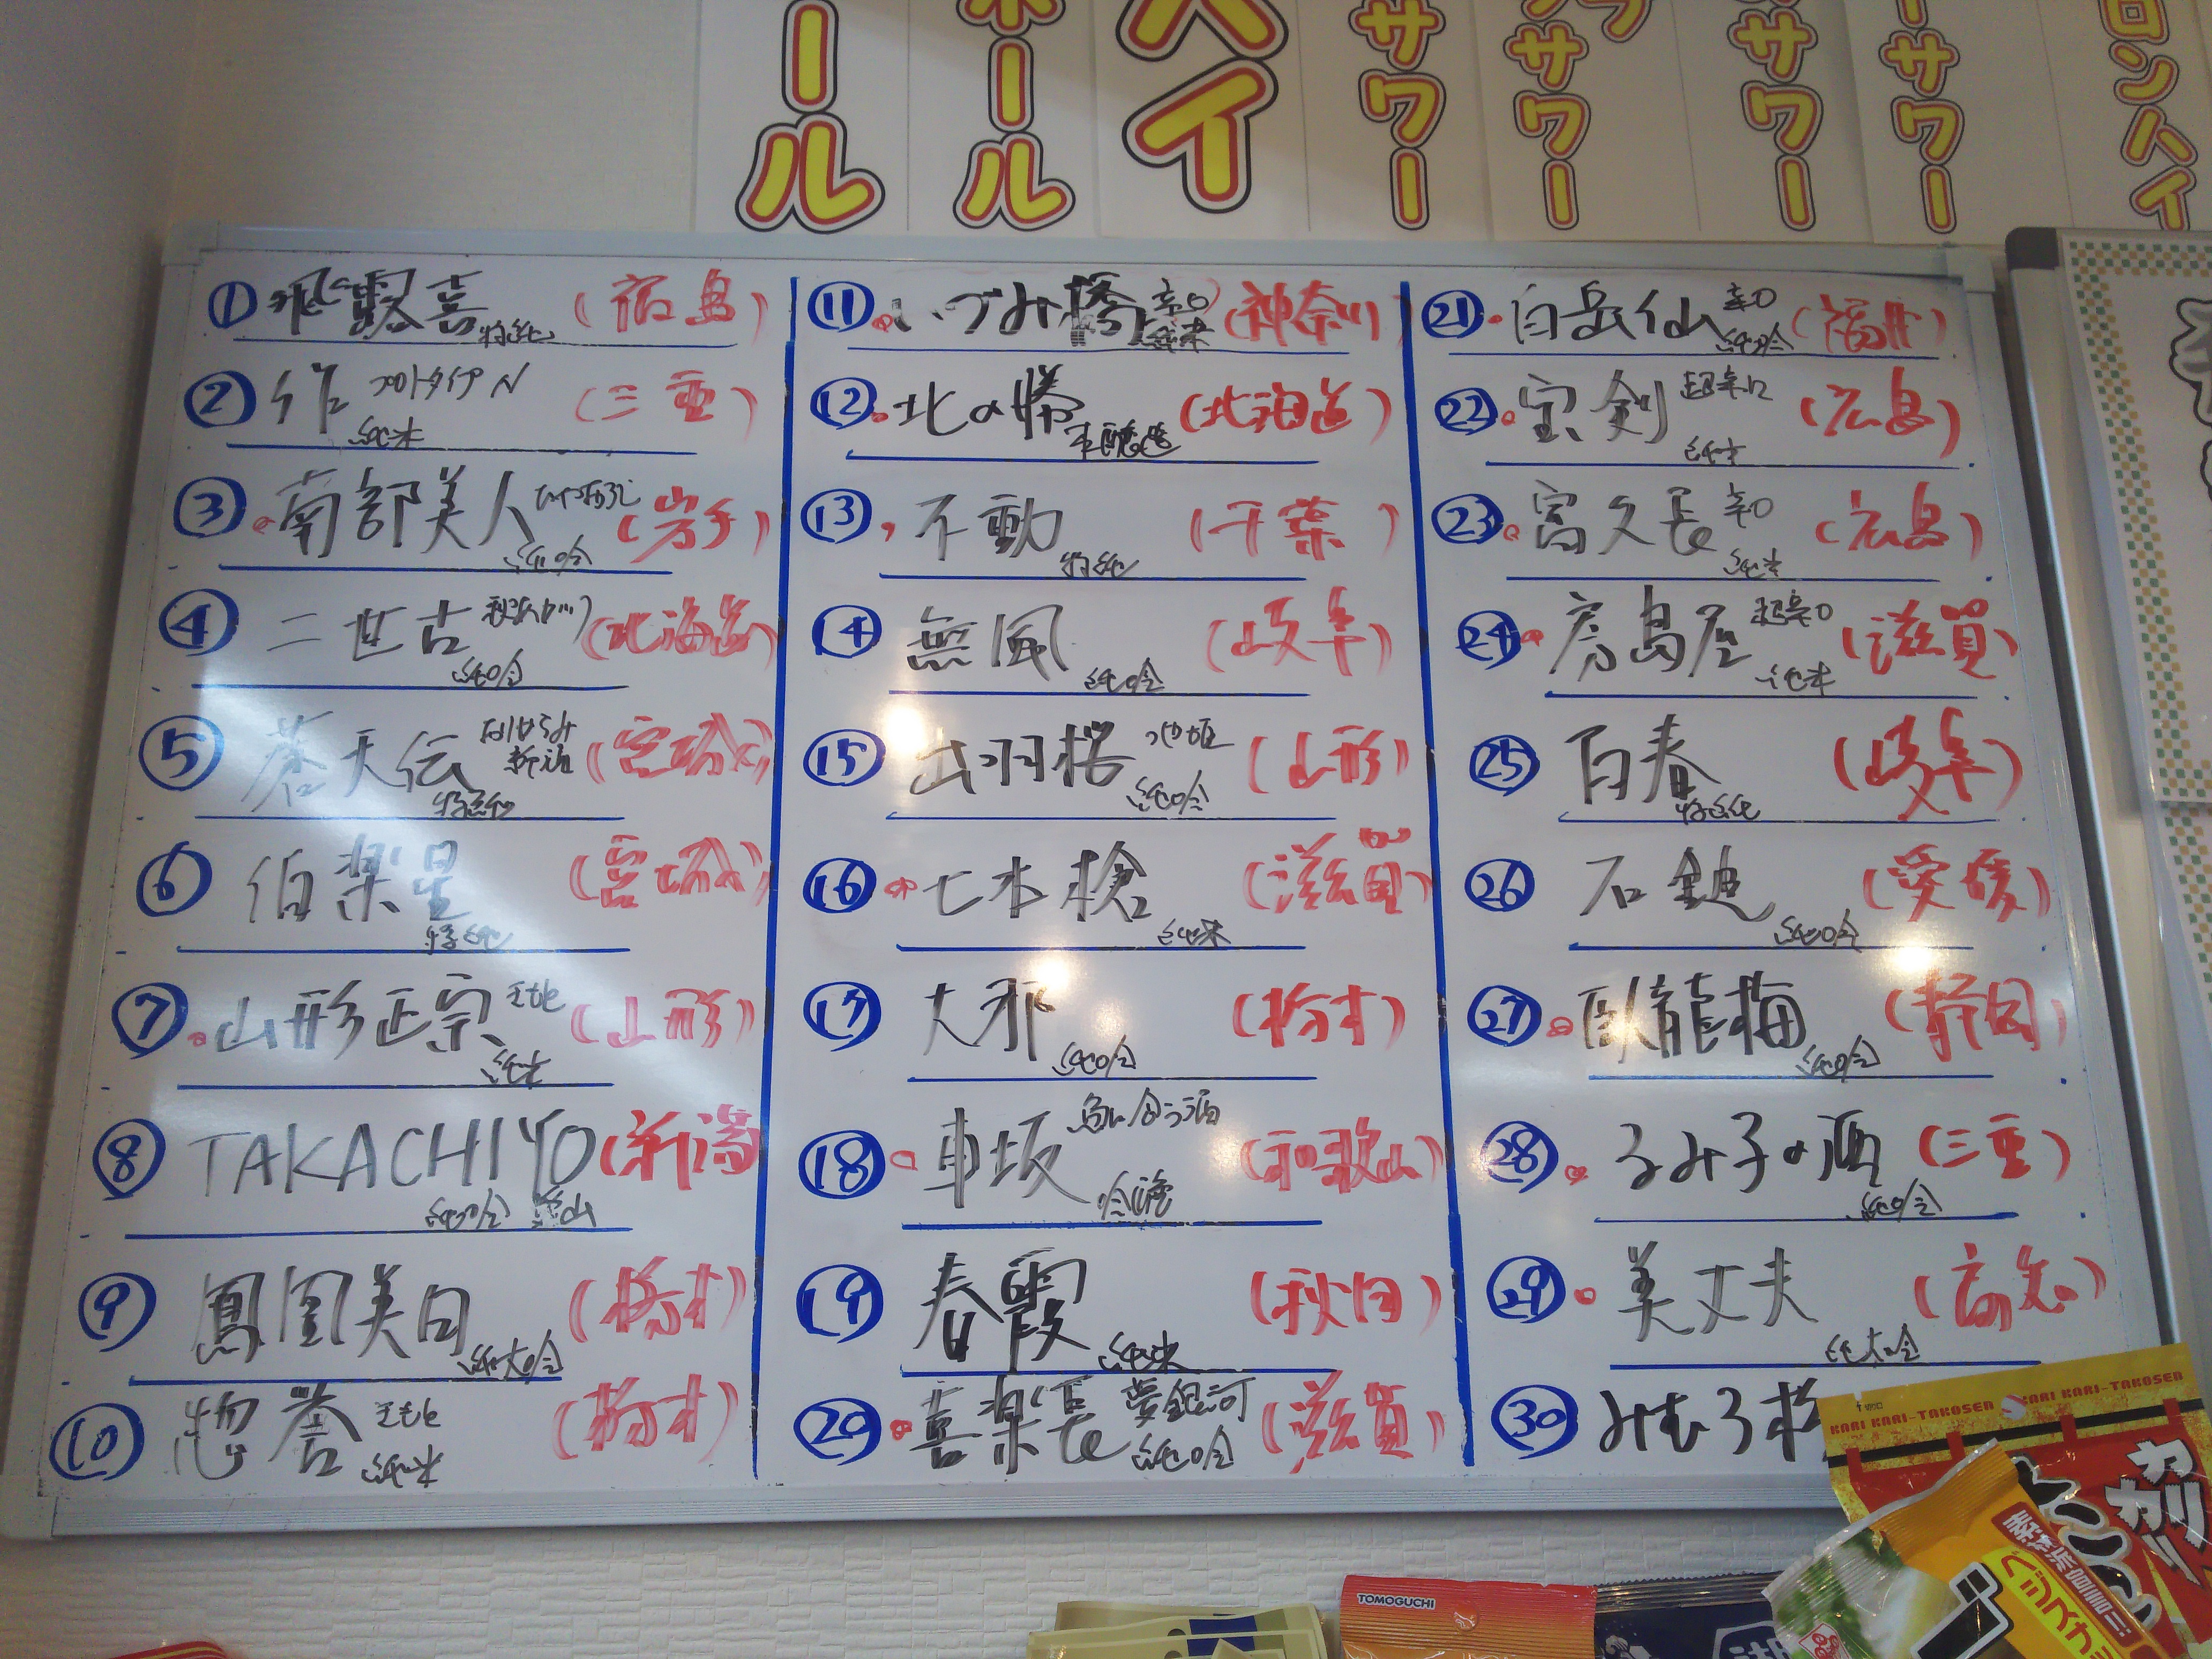 ール
ホール
ハイ
サワー
サワー
サワー
ーサワー
ロンハイ
① 飛露喜 特純 (福島)
② 作 プロトタイプN 純米 (三重)
③ 南部美人 ひやおろし 純吟 (岩手)
④ 二世古 純吟 (北海道)
⑤ 蒼天伝 特純 (宮城)
⑥ 伯楽星 特純 (宮城)
⑦ 山形正宗 純米 (山形)
⑧ TAKACHIYO 純吟 (新潟)
⑨ 鳳凰美田 純大吟 (栃木)
⑩ 惣誉 生もと 純米 (栃木)
⑪ いづみ橋 辛口 純米 (神奈川)
⑫ 北の勝 本醸造 (北海道)
⑬ 不動 特純 (千葉)
⑭ 無風 純吟 (岐阜)
⑮ 出羽桜 つや姫 純吟 (山形)
⑯ 七本槍 純米 (滋賀)
⑰ 大那 純吟 (栃木)
⑱ 車坂 魚に合う酒 吟醸 (和歌山)
⑲ 春霞 純米 (秋田)
⑳ 喜楽長 夢銀河 純吟 (滋賀)
㉑ 白岳仙 辛口 純吟 (福井)
㉒ 宝剣 超辛口 純米 (広島)
㉓ 富久長 辛口 純米 (広島)
㉔ 房島屋 超辛口 純米 (滋賀)
㉕ 百春 特純 (岐阜)
㉖ 石鎚 純吟 (愛媛)
㉗ 臥龍梅 純吟 (静岡)
㉘ るみ子の酒 純吟 (三重)
㉙ 美丈夫 純大吟 (高知)
㉚ みむろ杉
KARI KARI-TAKOSEN
KARI KARI-TAKOSEN
カリカリ
TOMOGUCHI